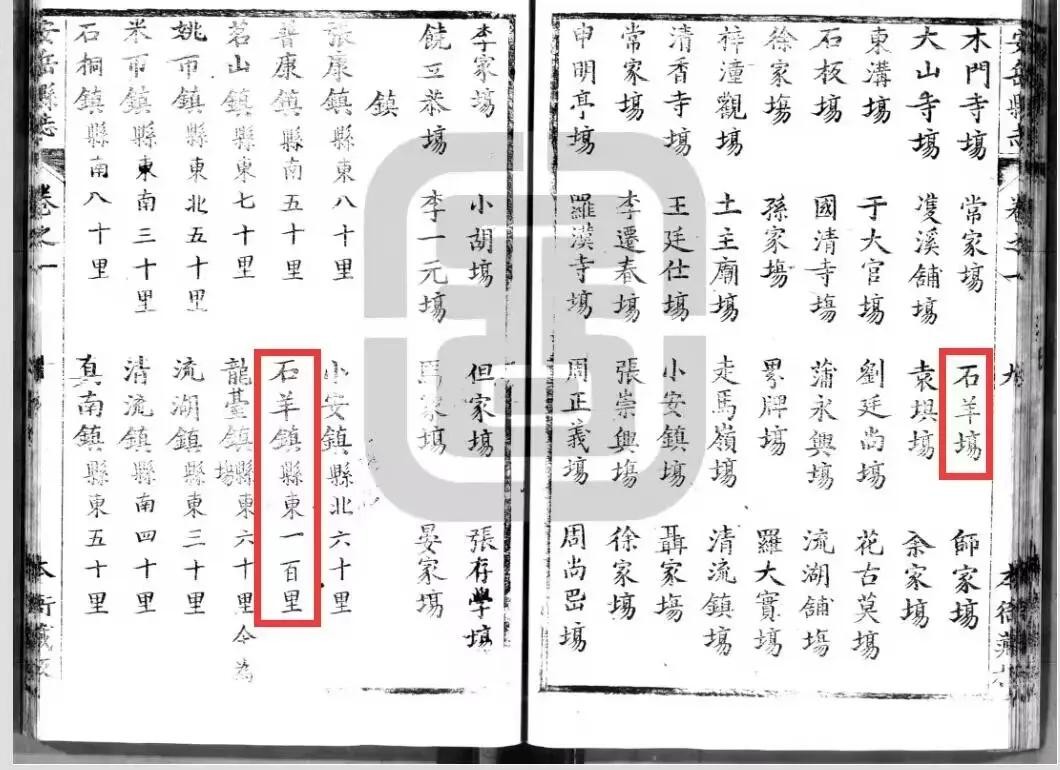 安岳縣志 卷之一 九 本衙藏
木門寺塲 常家塲 石羊塲 師家塲
大山寺塲 雙溪舖塲 袁垻塲 余家塲
東溝塲 于大官塲 劉廷尚塲 花古莫塲
石板塲 國清寺塲 蒲永興塲 流湖舖塲
徐家塲 孫家塲 累牌塲 羅大實塲
梓潼觀塲 土主廟塲 走馬嶺塲 清流鎮塲
清香寺塲 王廷仕塲 小安鎮塲 聶家塲
常家塲 李遷春塲 張崇興塲 徐家塲
申明亭塲 羅漢寺塲 周正義塲 周尚喦塲
李家塲 小胡塲 但家塲 張存學塲
饒立恭塲 李一元塲 馬家塲 晏家塲
鎮
張康鎮縣東八十里 小安鎮縣北六十里
普康鎮縣南五十里 石羊鎮縣東一百里
茗山鎮縣東七十里 龍臺鎮縣東六十里今為塲
姚市鎮縣東北五十里 流湖鎮縣東三十里
米市鎮縣東南三十里 清流鎮縣南四十里
石桐鎮縣南八十里 真南鎮縣東五十里
安岳縣志 卷之一 本衙藏板